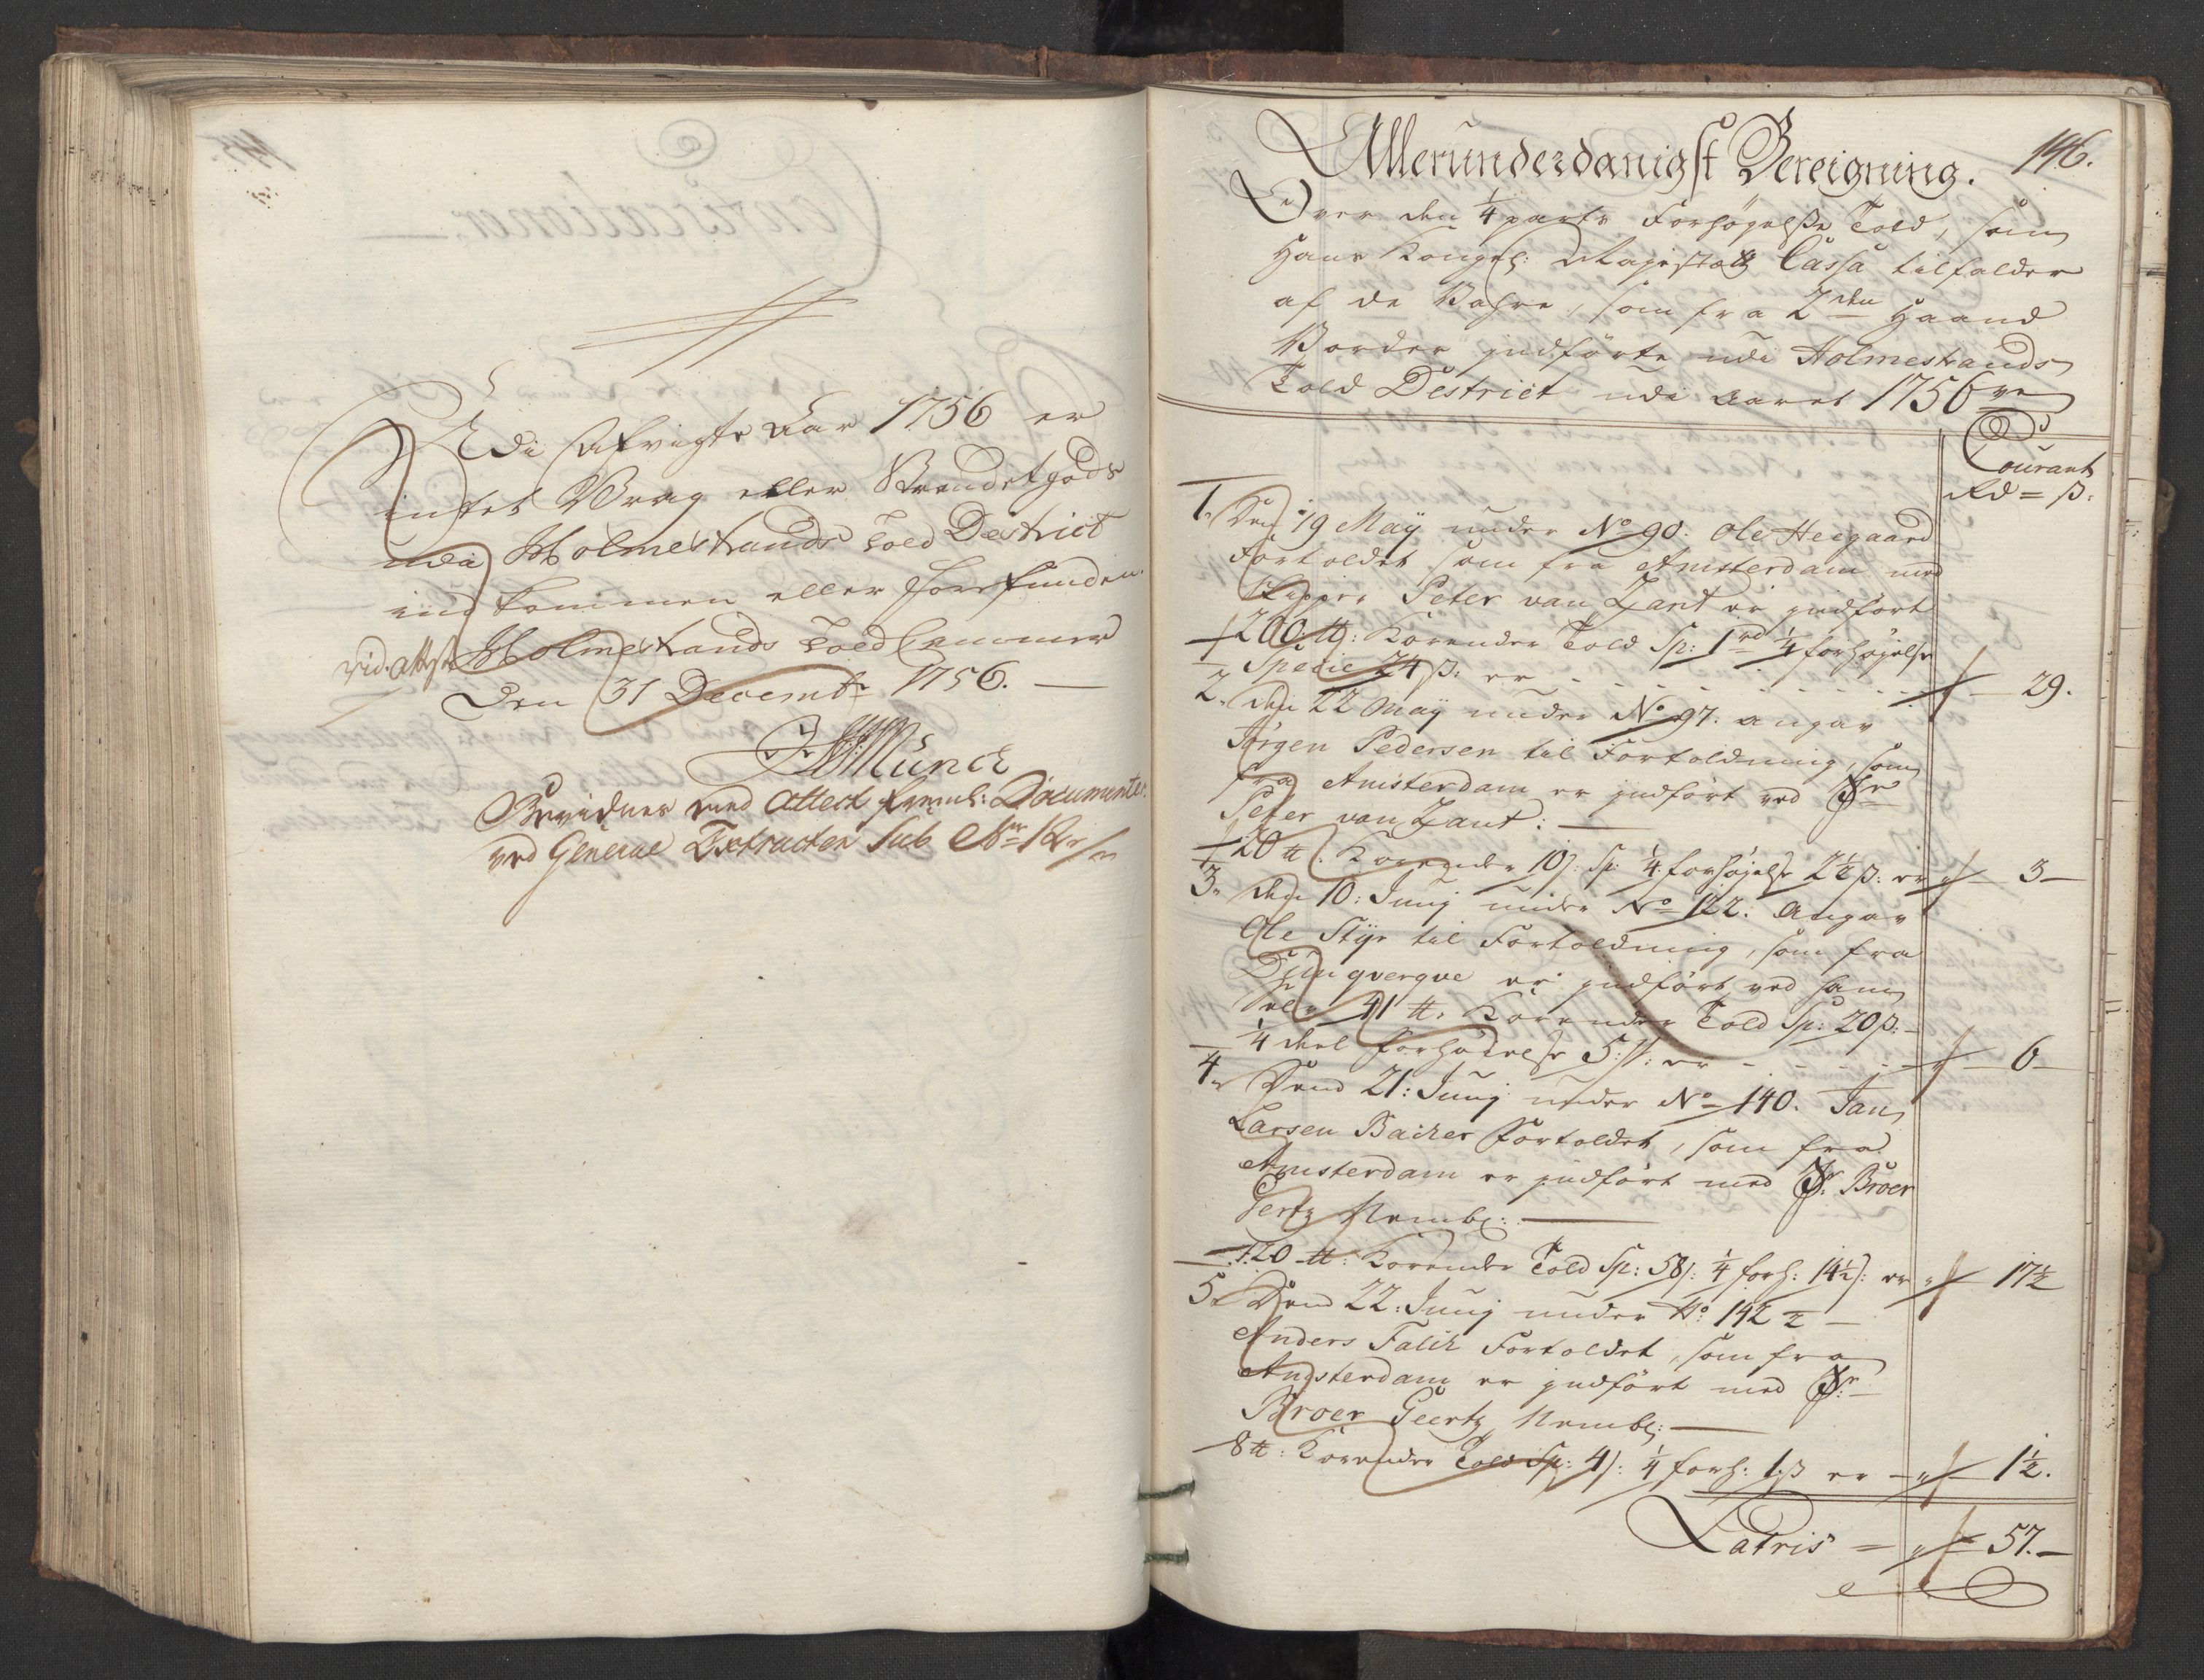 Udi Afvigte Aar 1756 er
intet Vrag eller Strandet gods
udi Holmestrands Told District
indkommen eller forefunden.
vid. attest Holmestrands Told Cammer
Den 31 Decembr 1756. —
Münch
Bevidner med Attest fremb: Documenter
ved General Extracten Sub No 12
Allerunderdanigst Bereigning. 146.
Over den 1/4 parts Forhøyelse Told, som
Hans Kongel: Mayestætts Cassa tilfalder
af de Vahre, som fra 2den Haand
Vorder indførte udi Holmestrands
Told District udi Aaret 1756
Courant
Rd = β:
1. Den 19 Maÿ under No 90: Ole Heegaard
Fortoldet som fra Amsterdam med
Skipper Peter van Zant er indført
200 ℔: Corender Told Sp: 1rd 1/4 forhøjelse
Specie 24 β: er - - - - - 29.
2. Den 22 Maÿ under No 97. angav
Jørgen Pedersen til Fortoldning, som
fra Amsterdam er indført ved Sr
Peter van Zant: —
20 ℔. Corender 10β: Sp: 1/4 forhøjelse 2 1/2 β: er — 3 —
3. Den 10: Junÿ under No 122: Angav
Ole Styr til Fortoldning, som fra
Dünqverqve er indført ved ham
selv 41 ℔. Corender Told Sp: 20β: —
1/4 deel forhøjelse 5:β: er - - - - 6 —
4. Dend 21: Junÿ under No 140. Jan
Larsen Backer Fortoldet, som fra
Amsterdam er indført med Sr. Broer
Gertz Nembl: —
120 ℔: Corender Told Sp: 58β: 1/4 forh: 14 1/2β: er 17 1/2
5. Dend 22: Junÿ under No: 142 —
Anders Falck Fortoldet, som fra
Amsterdam er indført med Sr
Broer Geertz Nembl: —
8 ℔: Corender Told Sp: 4β: 1/4 forh: 1:β er — 1 1/2.
Latris = 57. —